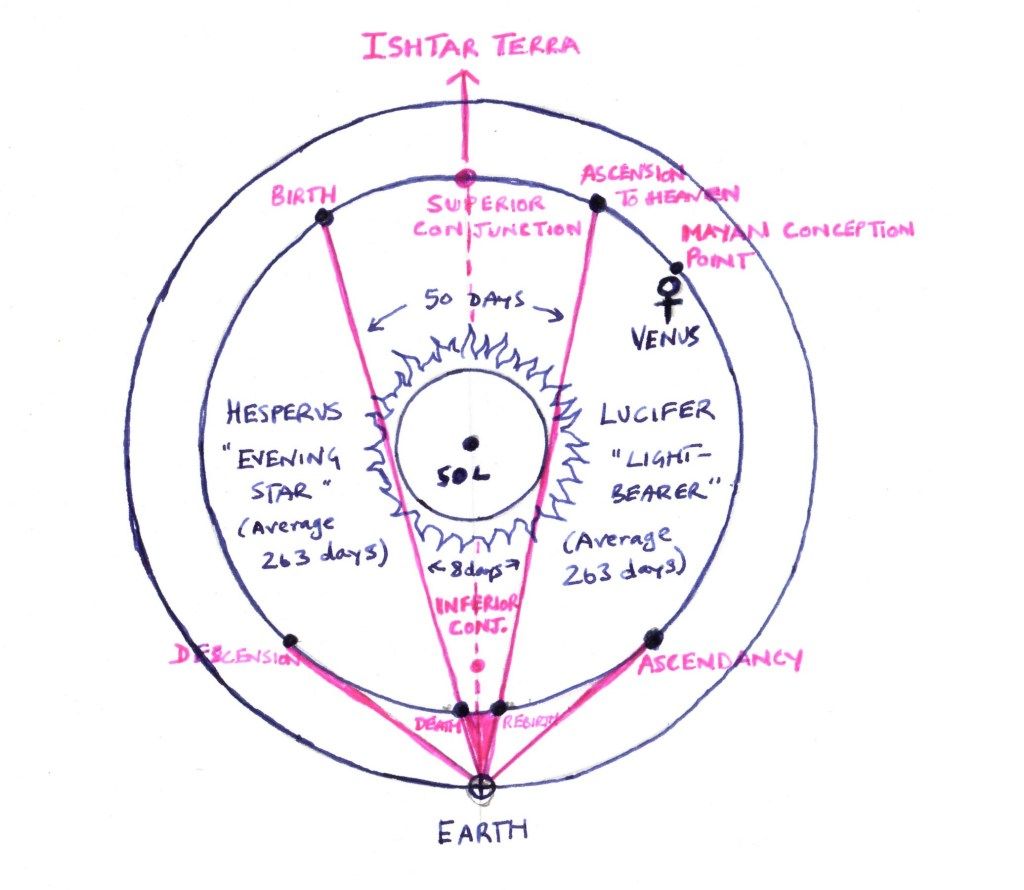 ISHTAR TERRA
BIRTH
SUPERIOR
CONJUNCTION
ASCENSION
TO HEAVEN
MAYAN CONCEPTION
POINT
50 DAYS
VENUS
HESPERUS
"EVENING
STAR"
(Average
263 days)
SOL
LUCIFER
"LIGHT-
BEARER"
(Average
263 days)
8 days
INFERIOR
CONJ.
DESCENSION
ASCENDANCY
DEATH
REBIRTH
EARTH